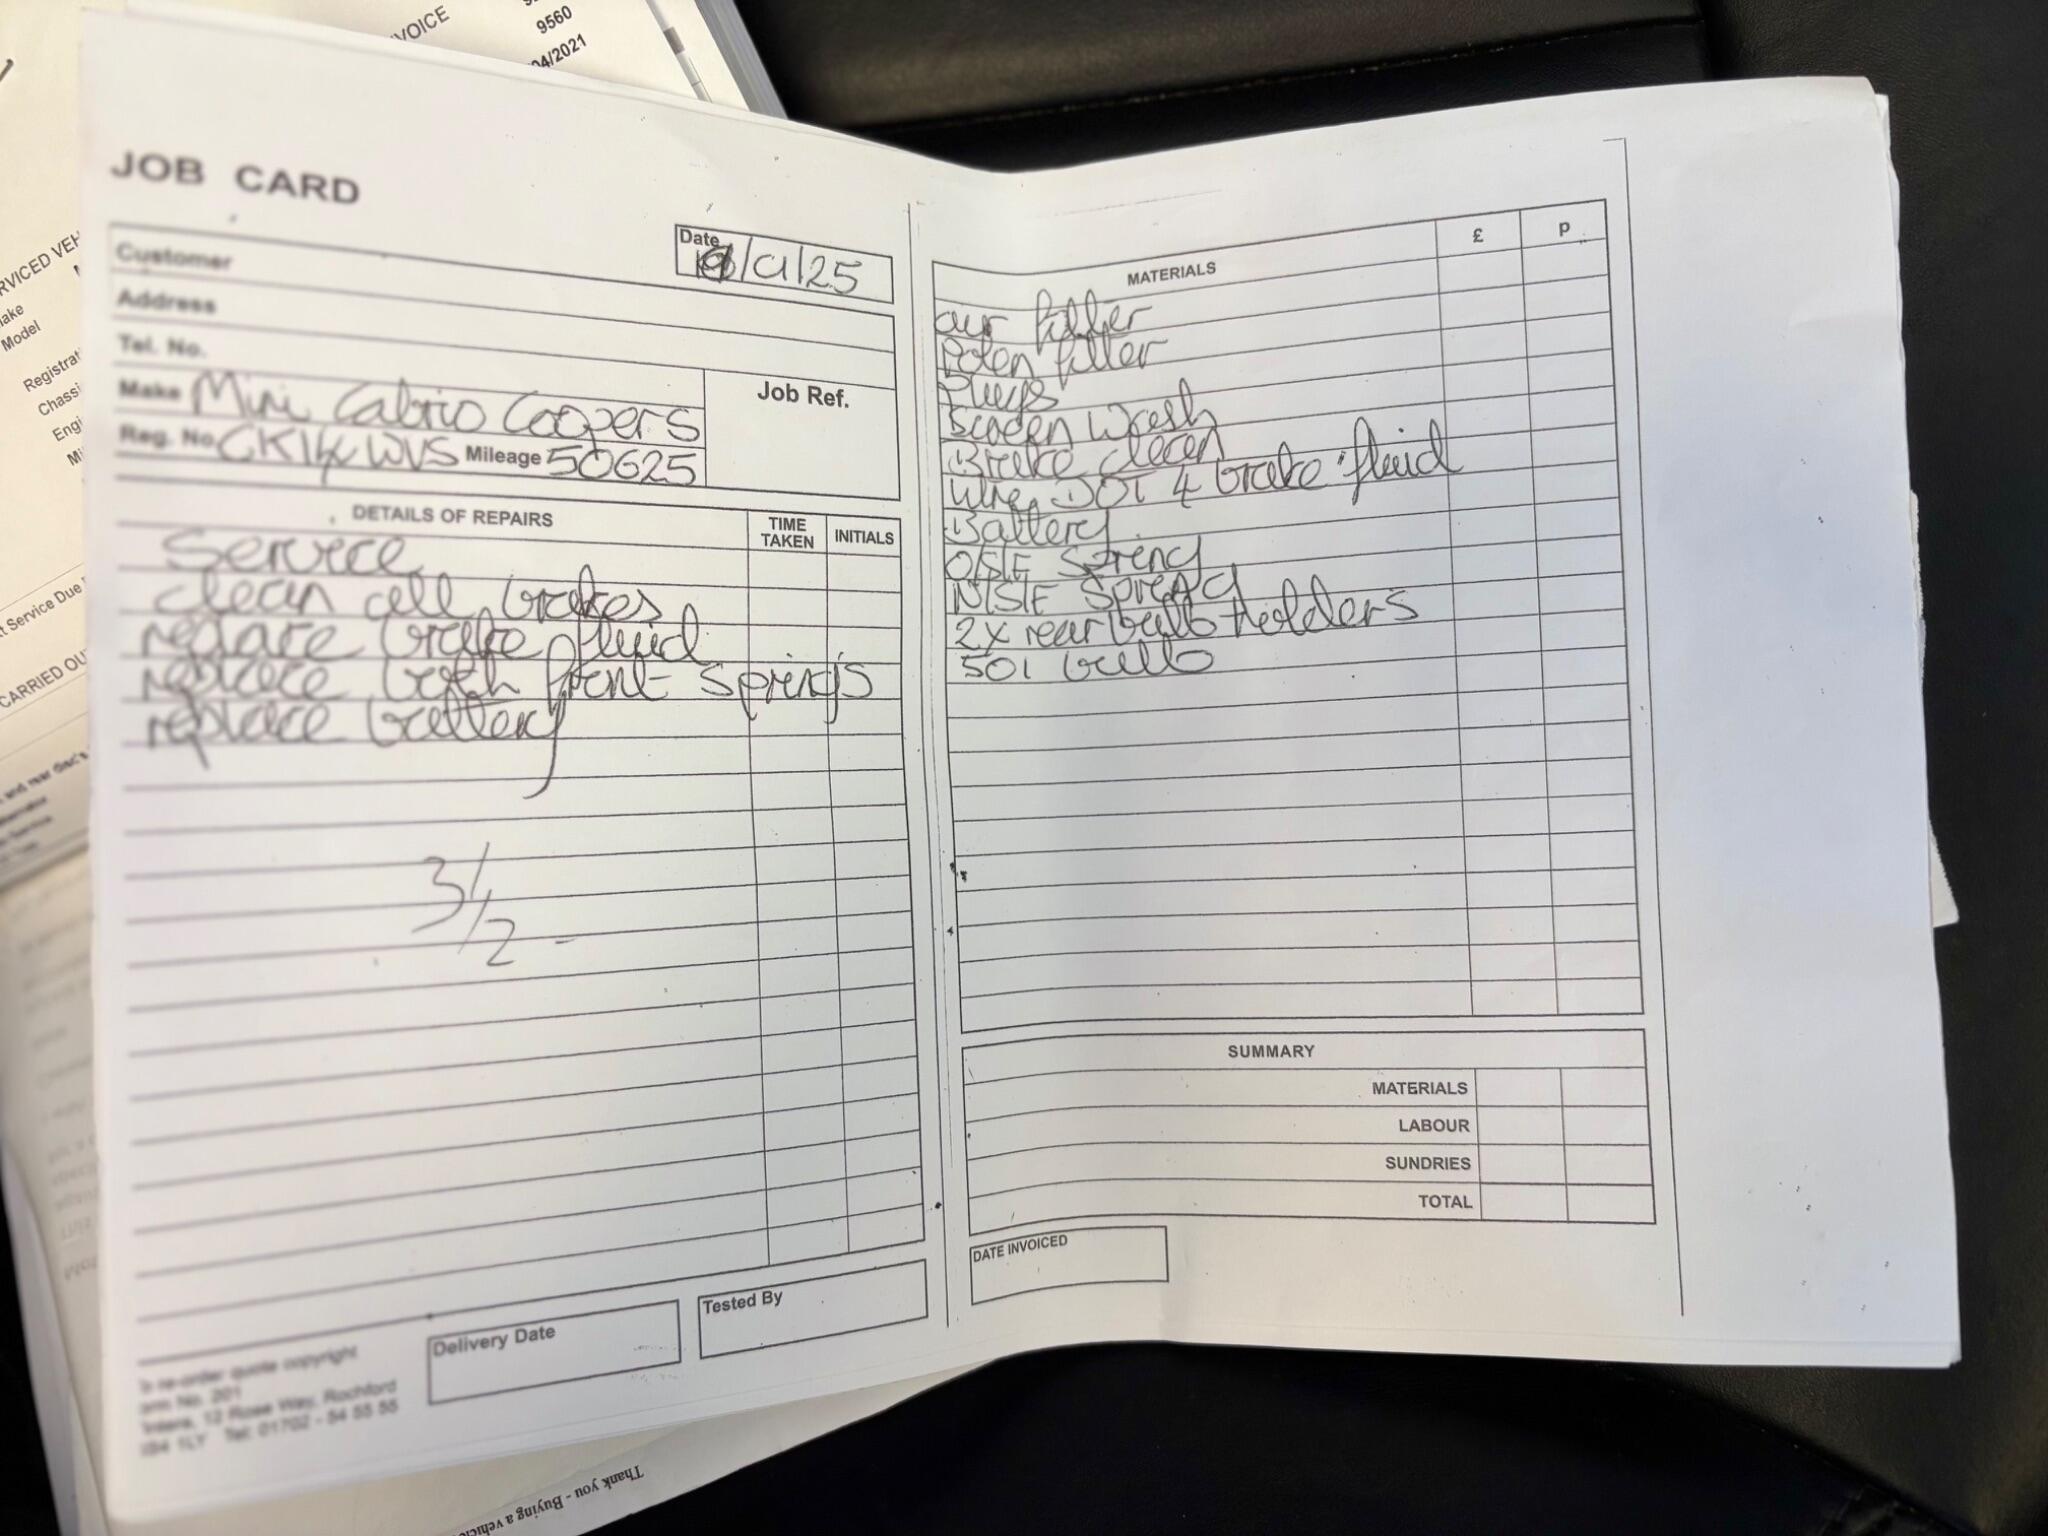 VOICE
9560
04/2021
RVICED VEH
Model
Registrat
Chass
Engi
t Service Due
CARRIED OU
JOB CARD
Date
/25
Customer
Address
Tel. No.
Make Mini Cabrio Cooper S
Reg. No. WVS Mileage 50625
Job Ref.
DETAILS OF REPAIRS
TIME TAKEN
INITIALS
Service
clean all brakes
replace brake fluid
replace both front Spring's
replace battery
3 1/2
Delivery Date
Tested By
to re-order quote copyright
orm No. 201
12 Rose Way, Rochford
SS4 1LY Tel: 01702 - 54 55 55
Thank you - Buying a vehicle
MATERIALS
£
p
air filter
Polen filter
Plugs
Screen Wash
Brake clean
DOT 4 brake fluid
Battery
O/S/F Spring
N/S/F Spring
2x rear bulb holders
501 bulb
SUMMARY
MATERIALS
LABOUR
SUNDRIES
TOTAL
DATE INVOICED